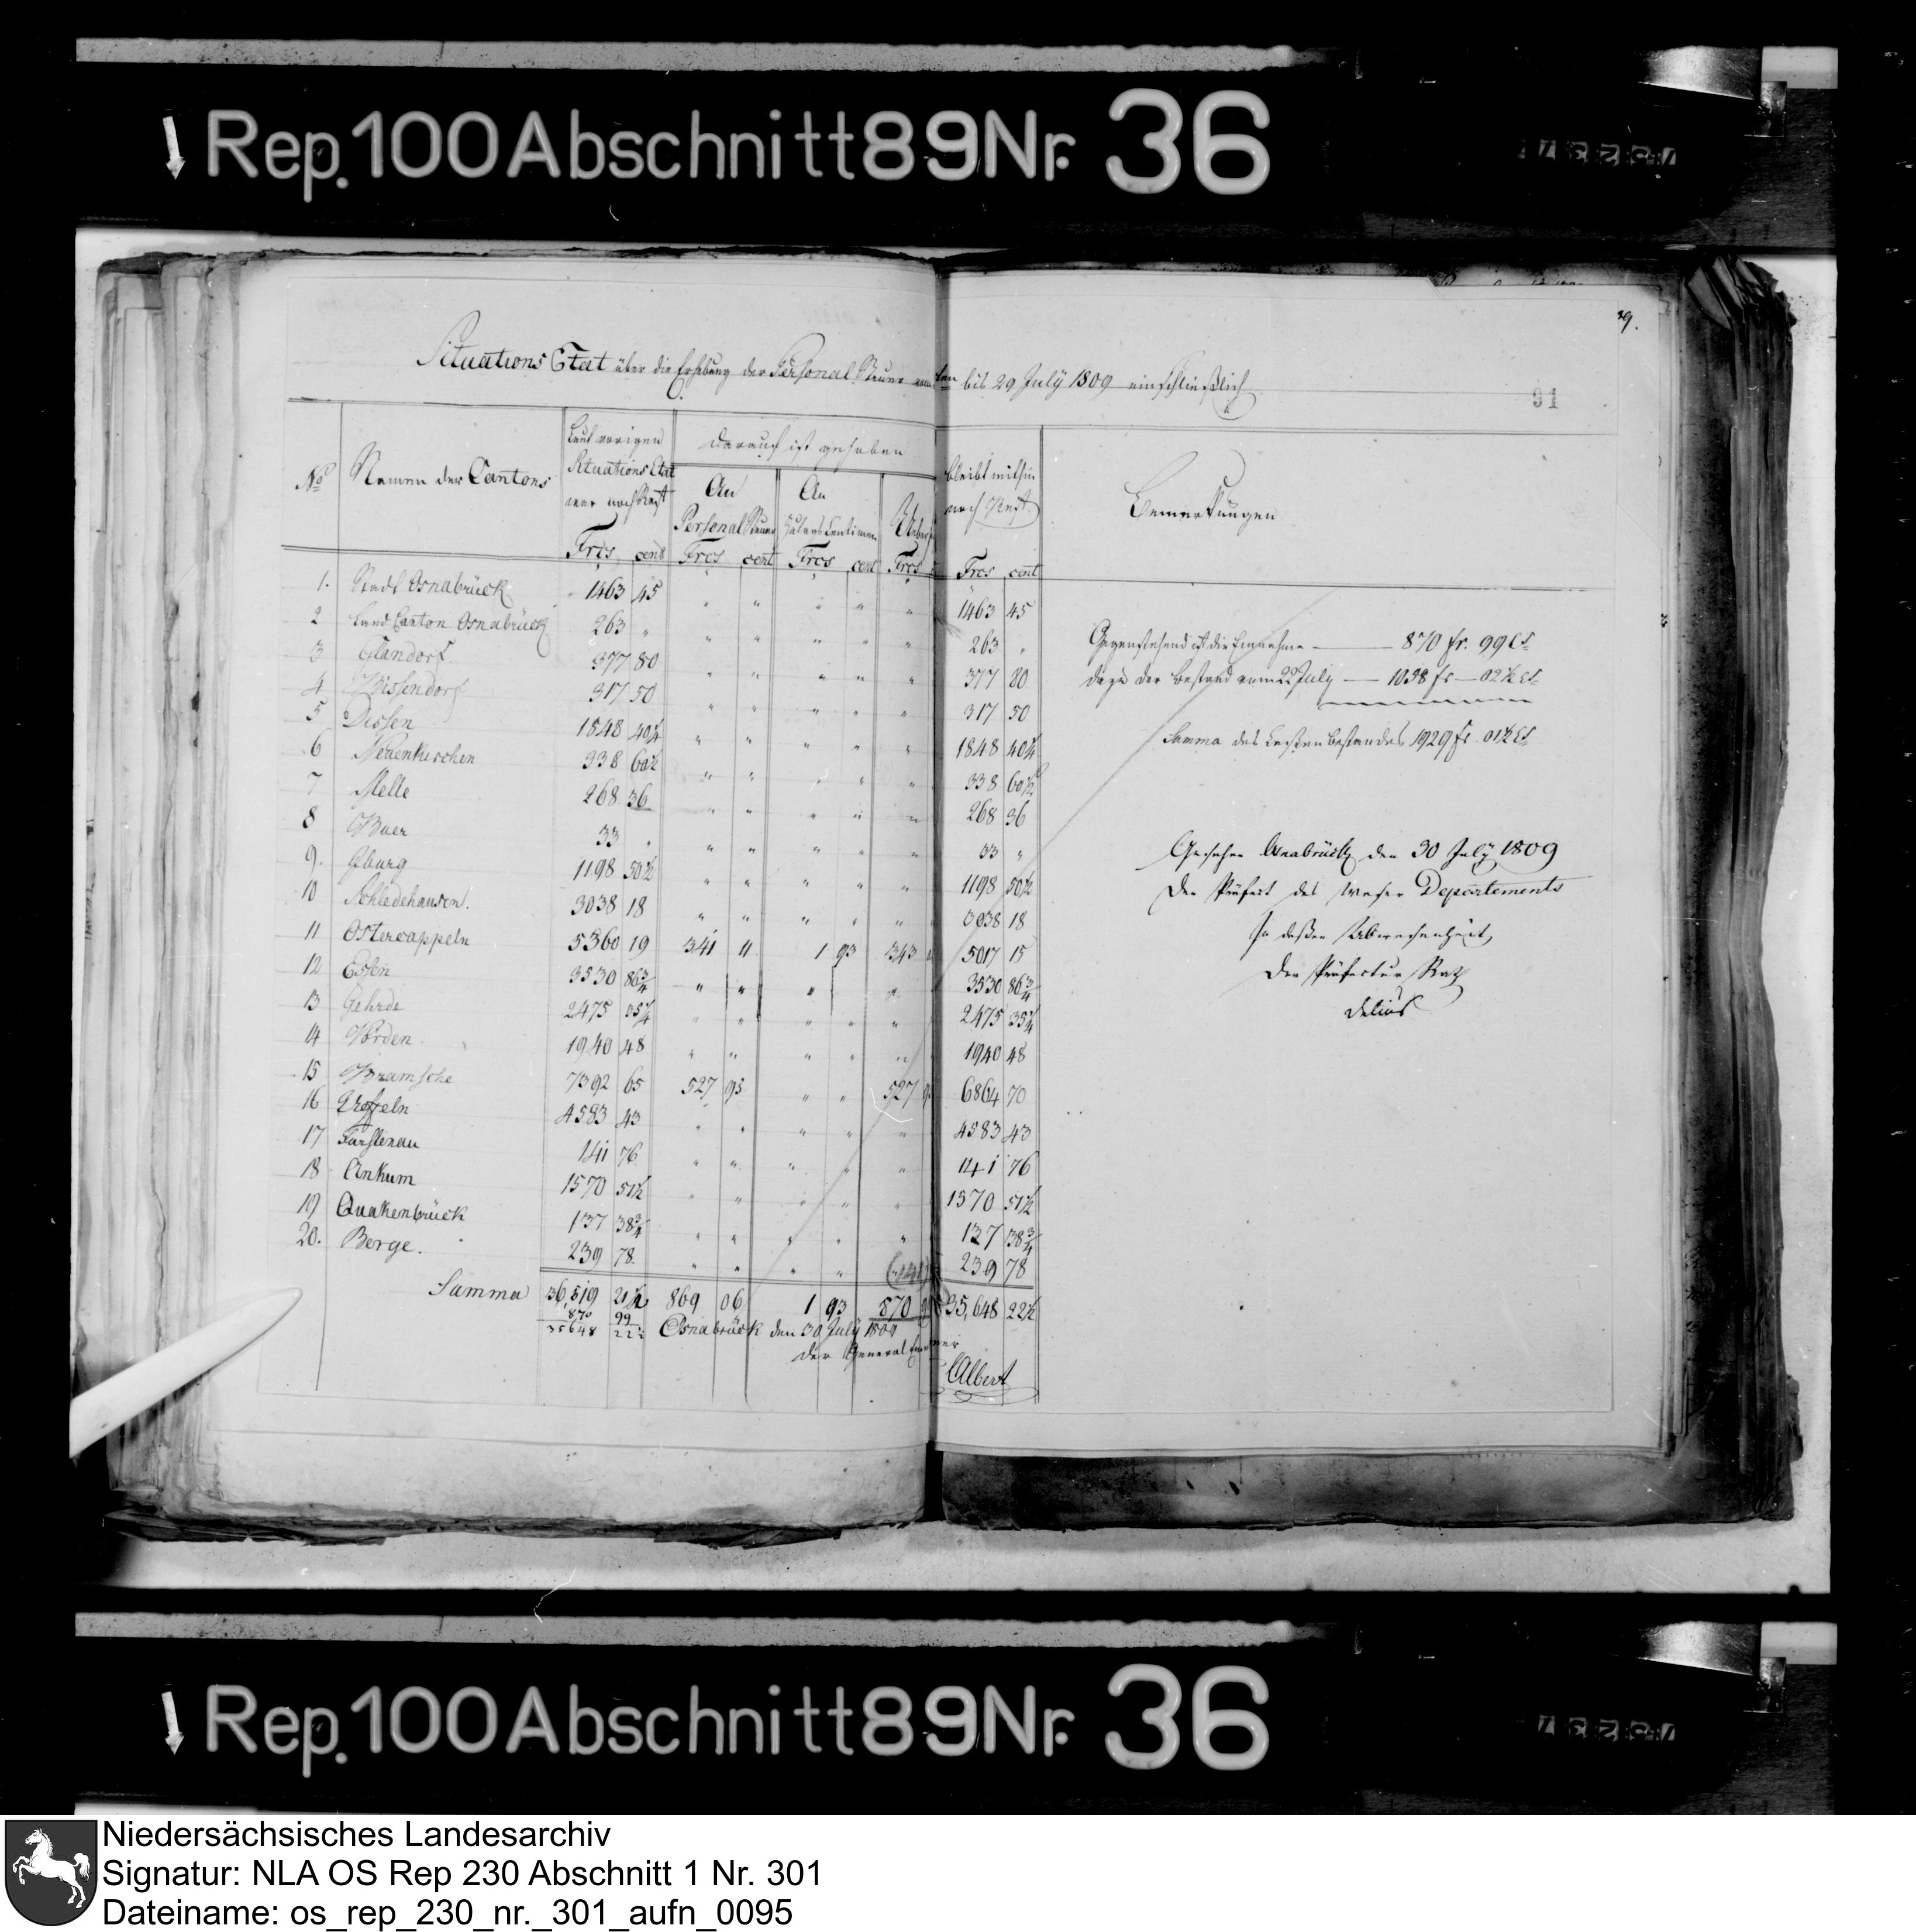 Rep. 100 Abschnitt 89 Nr. 36
29.
Situations Etat über die Erhebung der Personal Steuer vom ten bis 29 July 1809 einschließlich
91
No
Namen der Cantons
Laut vorigen Situations Etat war noch Rest
Darauf ist gehoben
An Personal Steuer
An Zulags Centimen
bleibt mithin noch Rest.
Bemerkungen
Frcs cent Frcs cent Frcs cent Frcs Frcs cent
1. Stadt Osnabrück 1463 45 " " " " " 1463 45
2 Land Canton Osnabrück 263 " " " " " " 263 "
3 Glandorf 377 80 " " " " " 377 80
4 Bissendorf 317 50 " " " " " 317 50
5 Dissen 1848 40¼ " " " " " 1848 40¼
6 Neuenkirchen 338 60½ " " " " " 338 60½
7 Melle 268 36 " " " " " 268 36
8 Buer 33 " " " " " " 33 "
9. Iburg 1198 50½ " " " " " 1198 50½
10 Schledehausen. 3038 18 " " " " " 3038 18
11 Ostercappeln 5360 19 341 11 1 93 343 5017 15
12 Essen 3530 86¾ " " " " 3530 86¾
13 Gehrde 2475 35¼ " " " " " 2475 35¼
14 Vörden 1940 48 " " " " " 1940 48
15 Bramsche 7392 65 527 95 " " 527 6864 70
16 Ueffeln 4583 43 " " " " " 4583 43
17 Fürstenau 141 76 " " " " " 141 76
18 Ankum 1570 51½ " " " " " 1570 51½
19 Quakenbrück 137 38¾ " " " " " 137 38¾
20. Berge. 239 78 " " " " 239 78
Summa 36,519 21½ 869 06 1 93 870 35,648 22½
870 99
35648 22½
Osnabrück den 30 July 1809
Der General Einnehmer
Albert
Gegenstehend ist die Einnahme — 870 fr. 99 Cs
dazu der Bestand vom 22 July — 1058 fs — 02½ Cs.
Summa des Cassen Bestandes 1929 fs. 01½ Cs
Gesehen Osnabrück den 30 July 1809
Der Präfect des Weser Departements
In deßen Abwesenheit,
Der Präfectur Rath
Delius
Rep. 100 Abschnitt 89 Nr. 36
Niedersächsisches Landesarchiv
Signatur: NLA OS Rep 230 Abschnitt 1 Nr. 301
Dateiname: os_rep_230_nr._301_aufn_0095